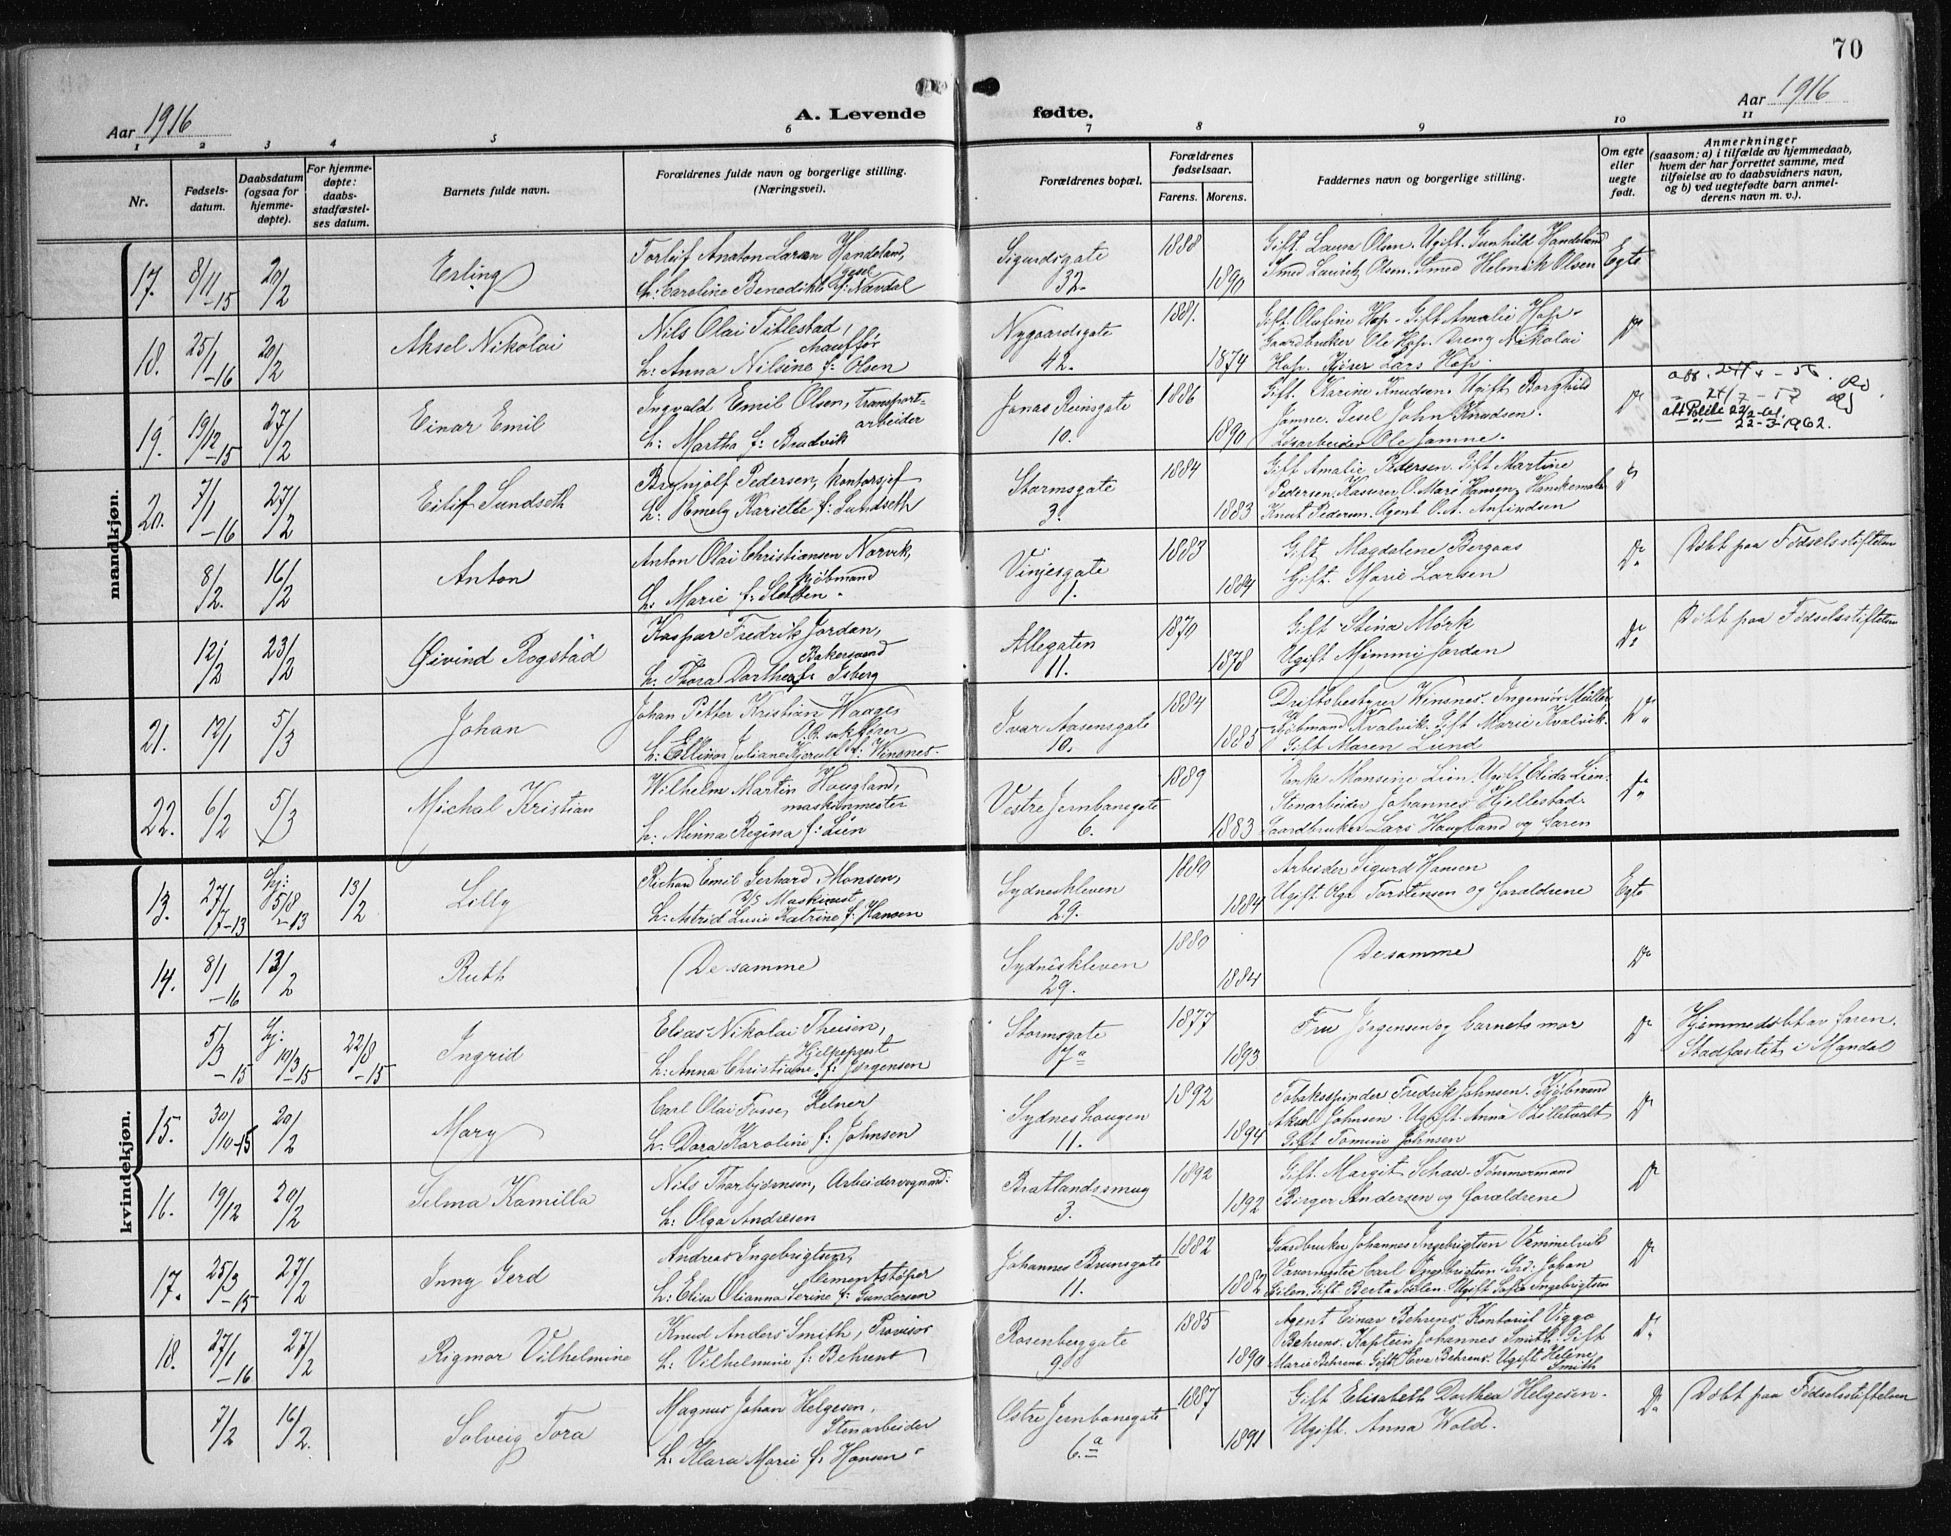 70
Aar 1916
A. Levende fødte.
Aar 1916
1 2 3 4 5 6 7 8 9 10 11
Nr.
Fødsels-
datum.
Daabsdatum
(ogsaa for
hjemme-
døpte).
For hjemme-
døpte:
daabs-
stadfæstel-
ses datum.
Barnets fulde navn.
Forældrenes fulde navn og borgerlige stilling.
(Næringsvei).
Forældrenes bopæl.
Forældrenes
fødselsaar.
Farens. Morens.
Faddernes navn og borgerlig stilling.
Om egte
eller
uegte
født.
Anmerkninger
(saasom: a) i tilfælde av hjemmedaab,
hvem der har forrettet samme, med
tilføielse av to daabsvidners navn,
og b) ved uegtefødte barn anmel-
derens navn m. v.).
mandkjøn.
17. 8/11-15 20/2 Erling
Torleif Anton Larsen Handeland,
h: Caroline Benedikte f: Nævdal
Sigurdsgate
32.
1888 1890
Gift. Laura Olsen. Ugift. Gunhild Handeland
Smed Lauritz Olsen. Smed Helmik Olsen
Egte
18. 25/1-16 20/2 Aksel Nikolai
Nils Olai Titlestad,
Chauffør
h: Anna Nilsine f: Olsen
Nygaardsgate
42.
1881. 1874
Gift. Olufine Hop. Gift Amalie Hop.
Gaardbruker Ole Hop. Dreng Nikolai
Hop. Kjører Lars Hop
Do
19. 19/12-15 27/2 Einar Emil
Ingvald Emil Olsen, transport-
arbeider
h: Martha f: Bradvik
Jonas Reinsgate
10.
1886 1890
Gift. Karine Knudsen. Ugift Borghild
Jamne. Tesel John Knudsen.
Løsarbeider Ole Jamne.
Do
22-3-1962.
20. 7/1-16 27/2 Eilif Sundseth
Brynjolf Pedersen, kontorsjef
h: Emely Kariette f: Sundseth
Stormsgate
3.
1884 1883
Gift Amalie Pedersen. Gift Martine
Pedersen. Kasserer O. Mare Hansen. Hanskemaker
Knut Pedersen. Agent O. A. Anfindsen
Do
8/2. 16/2 Anton
Anton Olai Christiansen Narvik,
Kjøbmand
h: Marie f: Sletten.
Vinjesgate
1.
1883 1884
Gift. Magdalene Bergaas
Gift. Marie Larsen
Do
Døbt paa Fødselsstiftelsen
12/2 23/2 Øivind Rogstad
Kaspar Fredrik Jordan,
Bakersvend
h: Thora Dorthea f: Isberg
Allegaten
11.
1870 1878
Gift Stina Mørk
Ugift Mimmi Jordan
Do
Døbt paa Fødselsstiftelsen
21. 12/1 5/3 Johan
Johan Petter Kristian Waages
O.R. sakfører
h: Ellinor Juliane Kjerulf f: Winsnes
Ivar Aasensgate
10.
1884 1885
Driftsbestyrer Winsnes. Ingeniør Müller
Kjøbmand Kvalvik. Gift Marie Kvalvik.
Gift Maren Lund
Do
22. 6/2 5/3 Michal Kristian
Wilhelm Martin Haugland,
maskinmester
h: Minna Regina f: Lien
Vestre Jernbanegate
6.
1889 1883
Enke Monsine Lien. Ugift Elida Lien.
Stenarbeider Johannes Hjellestad.
Gaardbruker Lars Haugland og faren
Do
kvindekjøn.
13. 27/7-13 Hj: 15/8-13 13/2 Lilly
Richard Emil Gerhard Monsen,
D/S Maskinist
h: Astrid Lusie Katrine f: Hansen
Sydneskleven
29.
1880 1884
Arbeider Sigurd Hansen
Ugift. Olga Torstensen og forældrene
Egte
14. 8/1-16 13/2 Ruth
De samme
Sydneskleven
29.
1880 1884
De samme
Do
5/3-15 Hj: 19/3-15 22/8-15 Ingrid
Elias Nikolai Theisen,
Hjelpeprest
h: Anna Christiane f: Jørgensen
Stormsgate
7a
1877 1893
Fru Jørgensen og barnets mor
Do
Hjemmedøbt av faren.
Stadfæstet i Mandal
15. 30/10-15 20/2 Mary
Carl Olai Fosse, Kelner
h: Dora Karoline f: Johnsen
Sydneshaugen
11.
1892 1894
Tobaksspinder Fredrik Johnsen. Kjøbmand
Aksel Johnsen. Ugift. Anna Lilletvedt
Gift Tomine Johnsen
Do
16. 19/12 20/2 Selma Kamilla
Nils Thorbjørnsen, Arbeidervognmd.
h: Olga Andresen
Bratlandssmug
3.
1892 1892
Gift. Margit Schau. Tømmermand
Birger Andersen og forældrene
Do
17. 25/3-15 27/2 Inny Gerd
Andreas Ingebrigtsen,
Sementstøper
h: Elisa Olianna Serine f: Gundersen
Johannes Brunsgate
11.
1882 1882
Gaardbruker Johannes Ingebrigtsen Vemmelvik
Værmester Carl Ingebrigtsen. Grd: Johan
Gilen. Gift. Berta Solen. Ugift Sofie Ingebrigtsen
Do
18. 27/1-16 27/2 Rigmor Vilhelmine
Knud Anders Smith, Provisor
h: Vilhelmine f: Behrens
Rosenberggate
9.
1885 1890
Agent Einar Behrens. Kontorist Viggo
Behrens. Kaptein Johannes Smith. Gift
Marie Behrens. Gift Eva Behrens. Ugift Helene
Smith
Do
7/2 16/2. Solveig Tora
Magnus Johan Helgesen,
Stenarbeider
h: Klara Marie f: Hansen
Østre Jernbanegate
6.a
1887 1891
Gift Elisabeth Dorthea Helgesen.
Ugift. Anna Wold.
Do
Døbt paa Fødselsstiftelsen